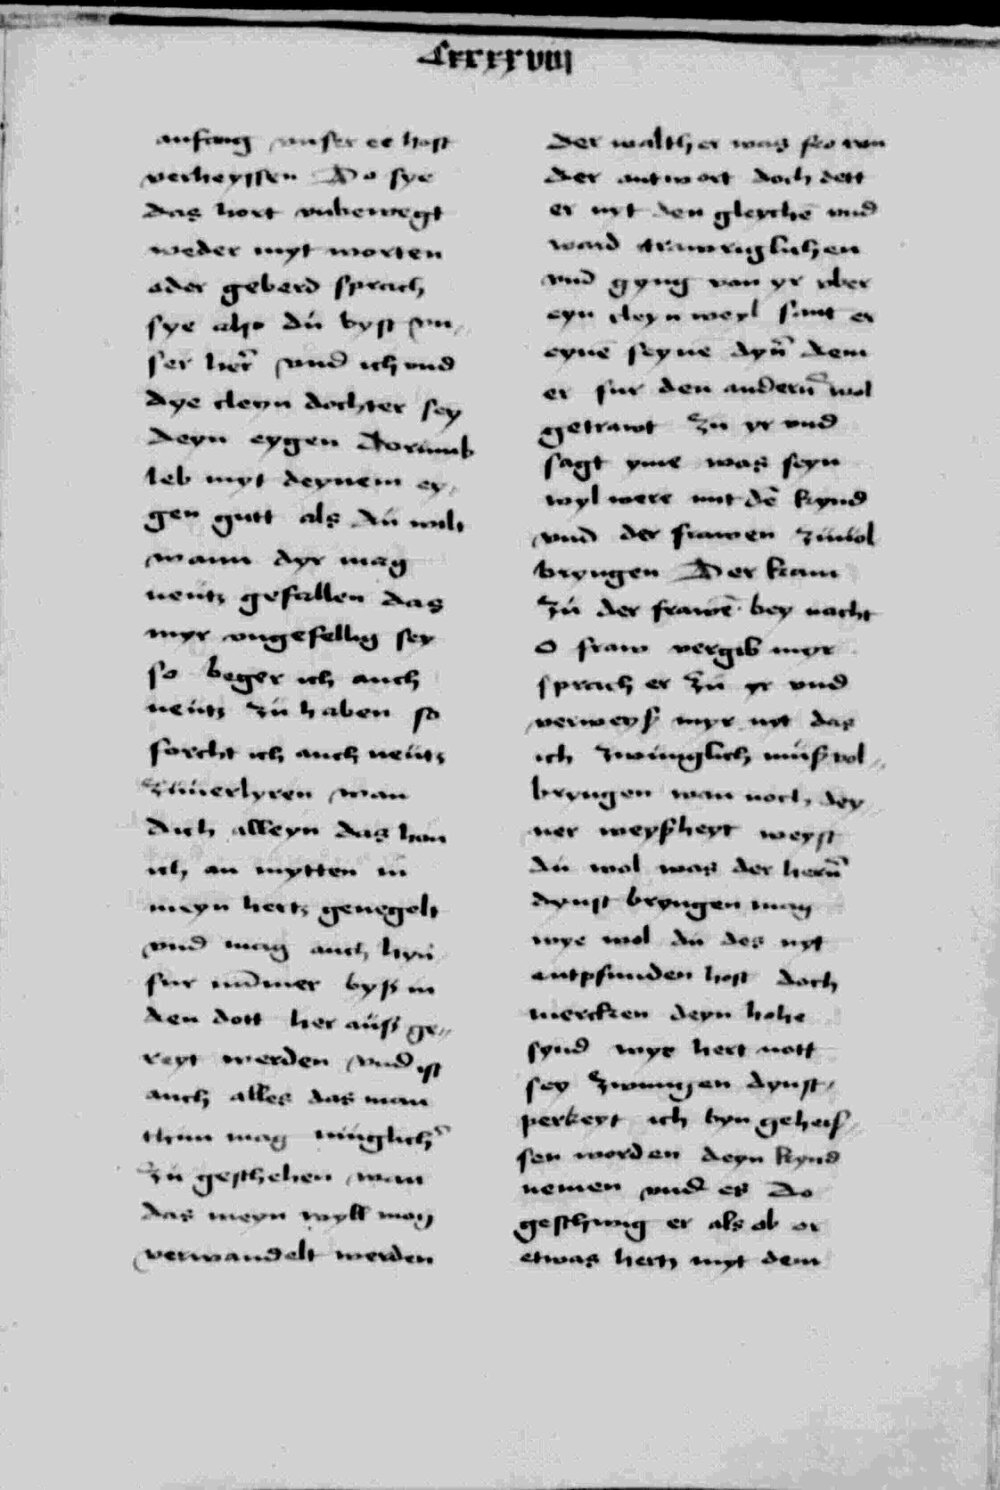 Cxxxxviij
anfang vnser ee host
verheyssen Do sye
das hort vnbewegt
weder myt worten
ader geberd sprach
sye also dú byst vn„
ser her̃ vnd ich vnd
dye cleyn dochter sey
deyn eygen Dorumb
leb myt deynem ey„
gen gutt als dú wilt
wann dyr mag
neütz gefallen das
myr vngefellig sey
so beger ich auch
neütz zú haben so
forcht ich auch neütz
zúuerlyren wan
dich alleyn das han
ich an mytten in
meyn hertz genegelt
vnd mag auch hyn
fur nům̄er byß in
den dott her auß ge„
reyt werden vnd ist
auch alles das man
thun mag múglich&#x27;
zú geschehen wan
das meyn wyll mog
verwandelt werden
der walther was fro von
der antwort doch dett
er nyt den gleychē vnd
ward trawriglichen
vnd gyng von yr vber
eyn cleyn weyl sant er
eynē seynē dyn̄ dem
er fur den andern̄ wol
getrawt zú yr vnd
sagt yme was seyn
wyl were mit dē kynd
vnd der frawen zúuol
bryngen Der kam
zú der frawē bey nacht
o fraw vergib myr
sprach er zú yr vnd
verweyß myr nyt das
ich zwúnglich múß vol„
bryngen wan noch dey„
ner weyßheyt weyst
dú wol was der hern̄
dynst bryngen mag
wye wol dú des nyt
entpfunden host doch
mercken deyn hohe
synd wye hert nott
sey zwungen dynst„
perkeyt ich byn geheis„
sen worden deyn kynd
nemen vnd es do
geschwig er als ob er
etwas hertz myt dem